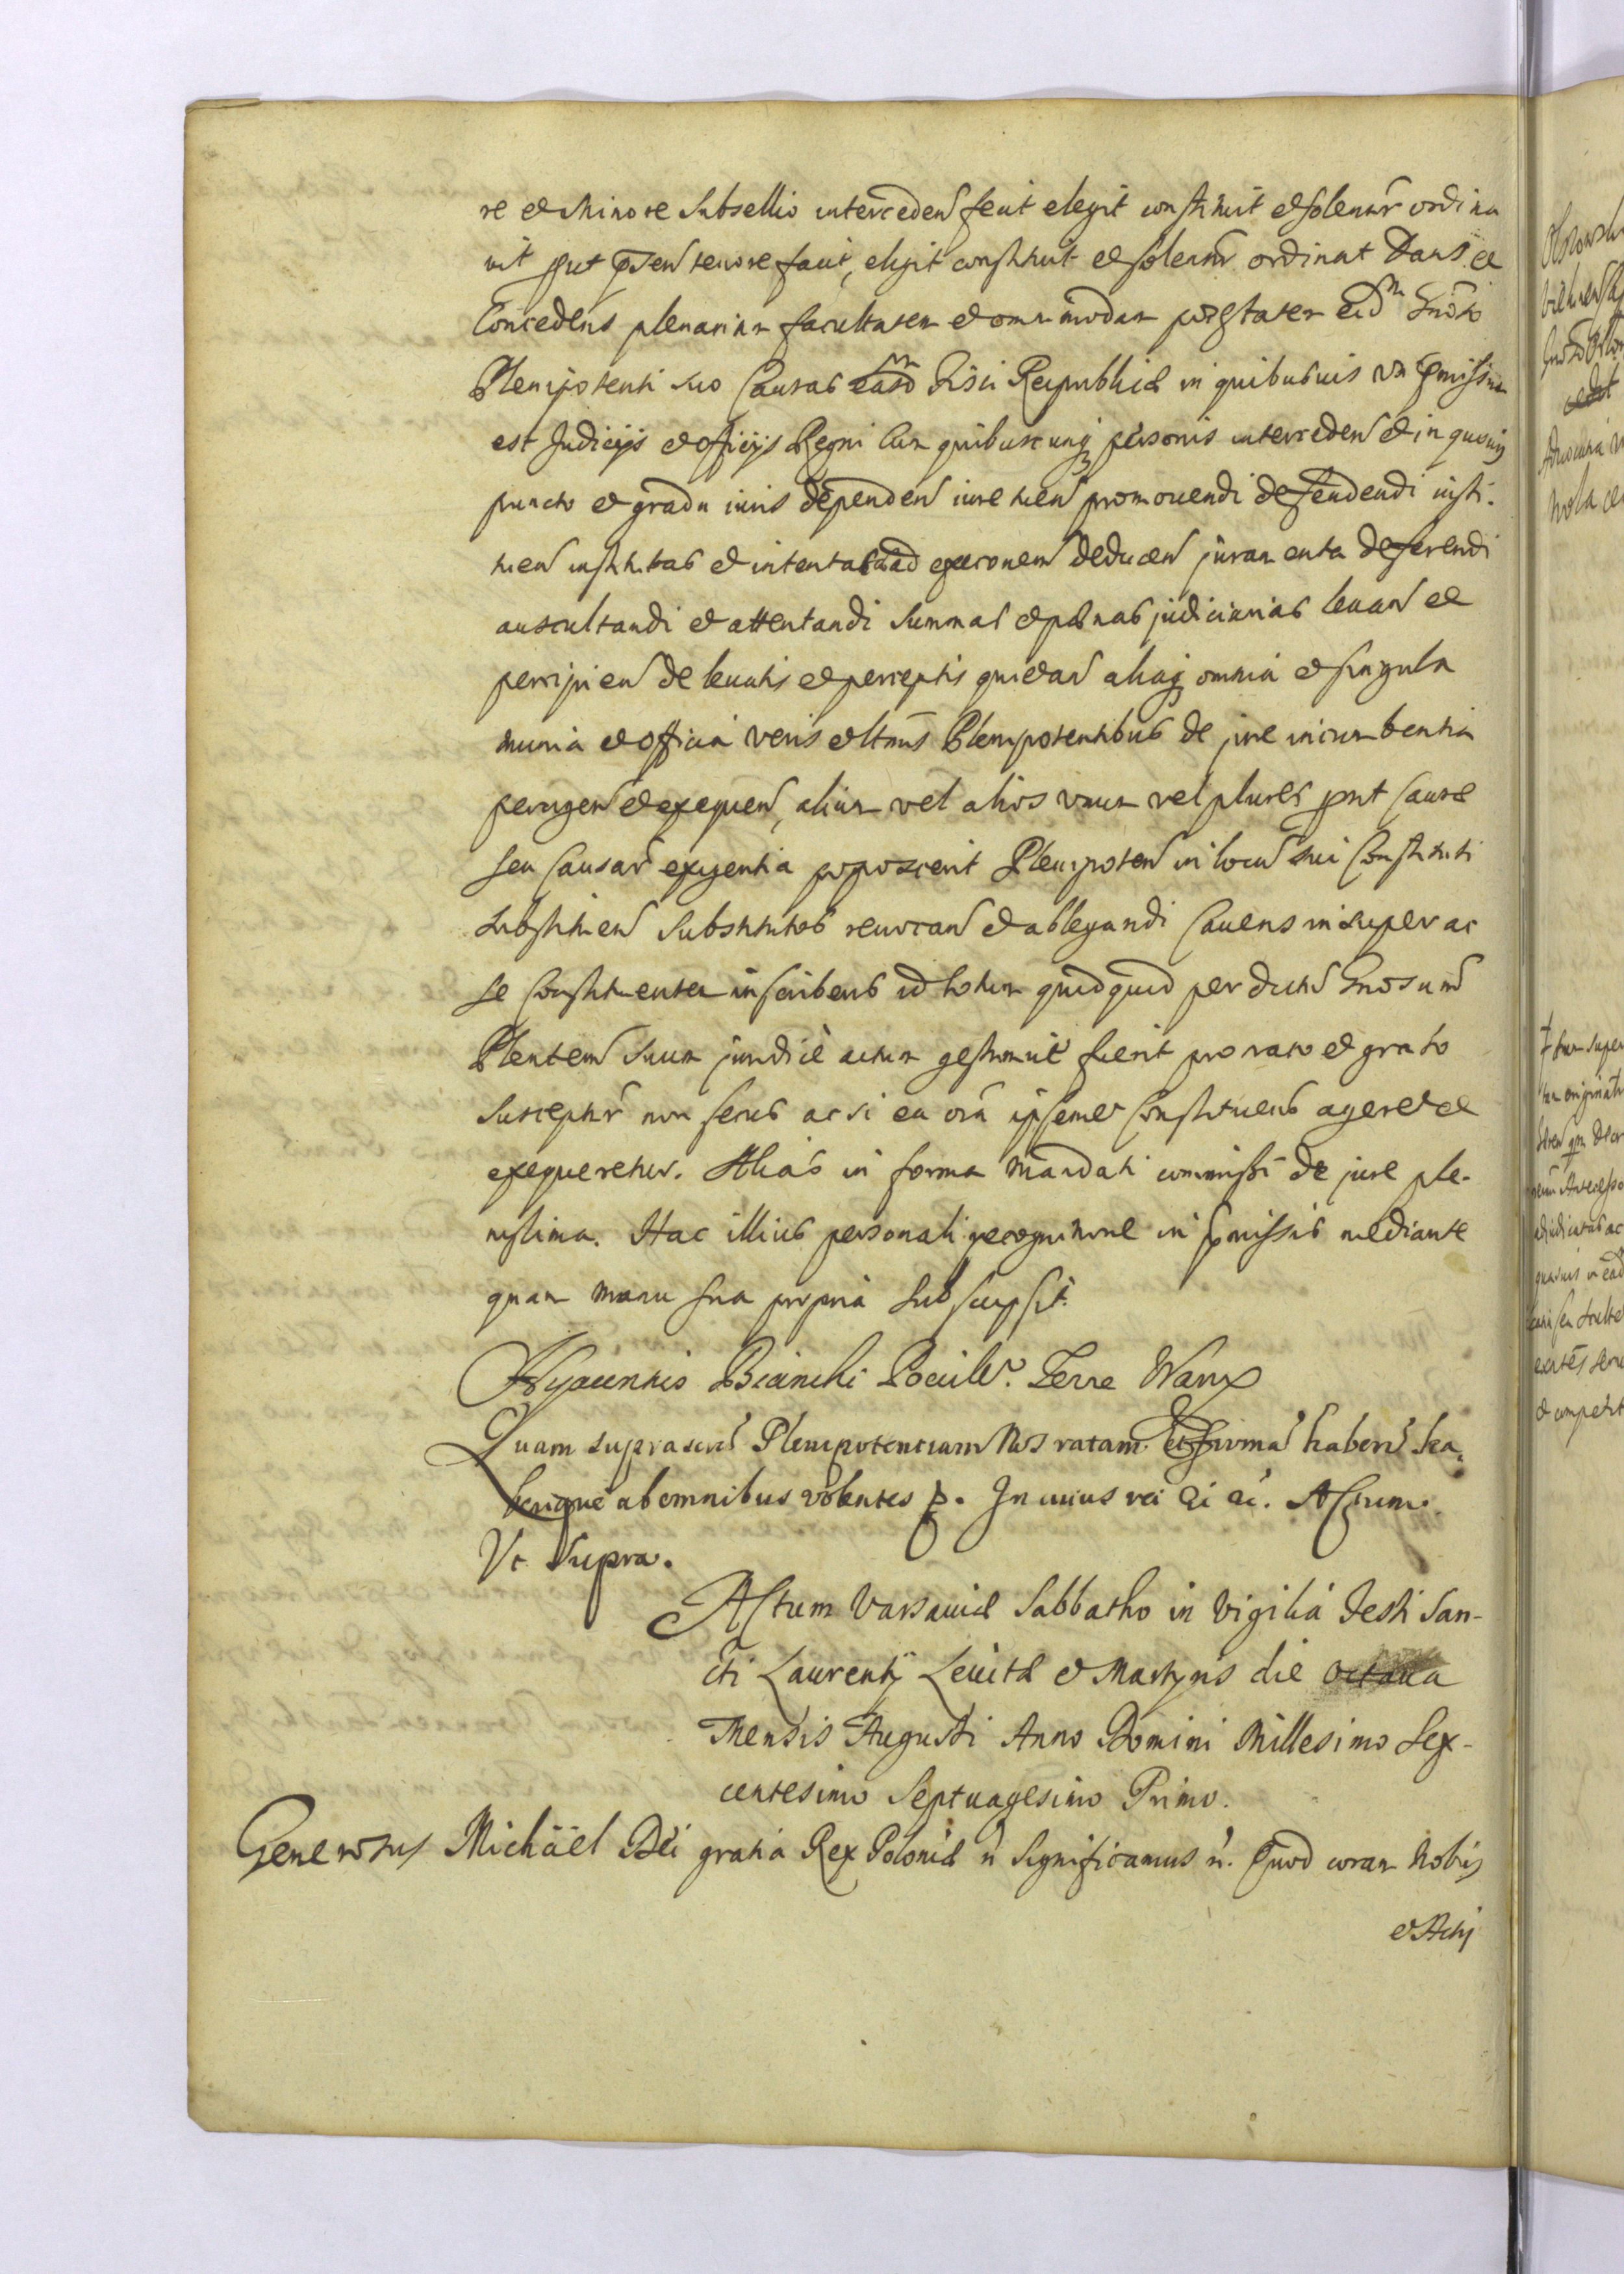 re et minore Subsellio interceden fecit elegit constituit et solenr ordina
vit put pnsen tenore facit, elegit constituit et solenr ordinat Dans et
Concedens plenariam facultatem et omnimodam potestatem eidm Gnoso
Plenipotenti suo Causas easdm Fisci Reipublicæ in quibusuis vti pmissum
est Judicijs et officijs Regni Cum quibuscunq personis interceden et in quouis
puncto et gradu iuris dependen iure tuen promouendi defendendi insti-
tuen institutas et intentatas ad execonem deducen juramenta deferendi
auscultandi et attentandi Summas et pænas judiciarias leuan et
percipien de leuatis et perceptis quietan aliaq omnia et singula
munia et officia veris et ltmis Plenipotentibus de jure incumbentia
peragen et exequen, alium vel alios vnum vel plures put Causæ
seu Causar exigentia poposcerit Plenipoten in locum sui Constituti
substituen Substitutos reuocan et ablegandi Cauens insuper ac
se Constituentem inscribens id totum quidquid per dictum Gnosum
Plentem suum juridicè actum gestumue fuerit pro rato et grato
suscepturum non secus ac si ea oia ipsemet Constituens ageret et
exequeretur. Alias in forma Mandati commissi de jure ple-
nissima. Hac illius personali recognitione in pmissis mediante
quam manu sua propria subscripsit.
Hyacentio Bianchi Pocill. Terre Wars
Quam suprascr Plenipotenciam Nos ratam et firma haberi ha-
berique ab omnibus volentes p. In cuius rei Actum.
Vt Supra.
Actum Varsauiæ Sabbatho in Vigilia Festi San-
cti Laurentij Leuitæ et Martyris die octaua
Mensis Augusti Anno Domini Millesimo Sex-
centesimo Septuagesimo Primo.
Generosus Michäel Dei gratia Rex Poloniæ Significamus Quod coram Nobis
et Actis